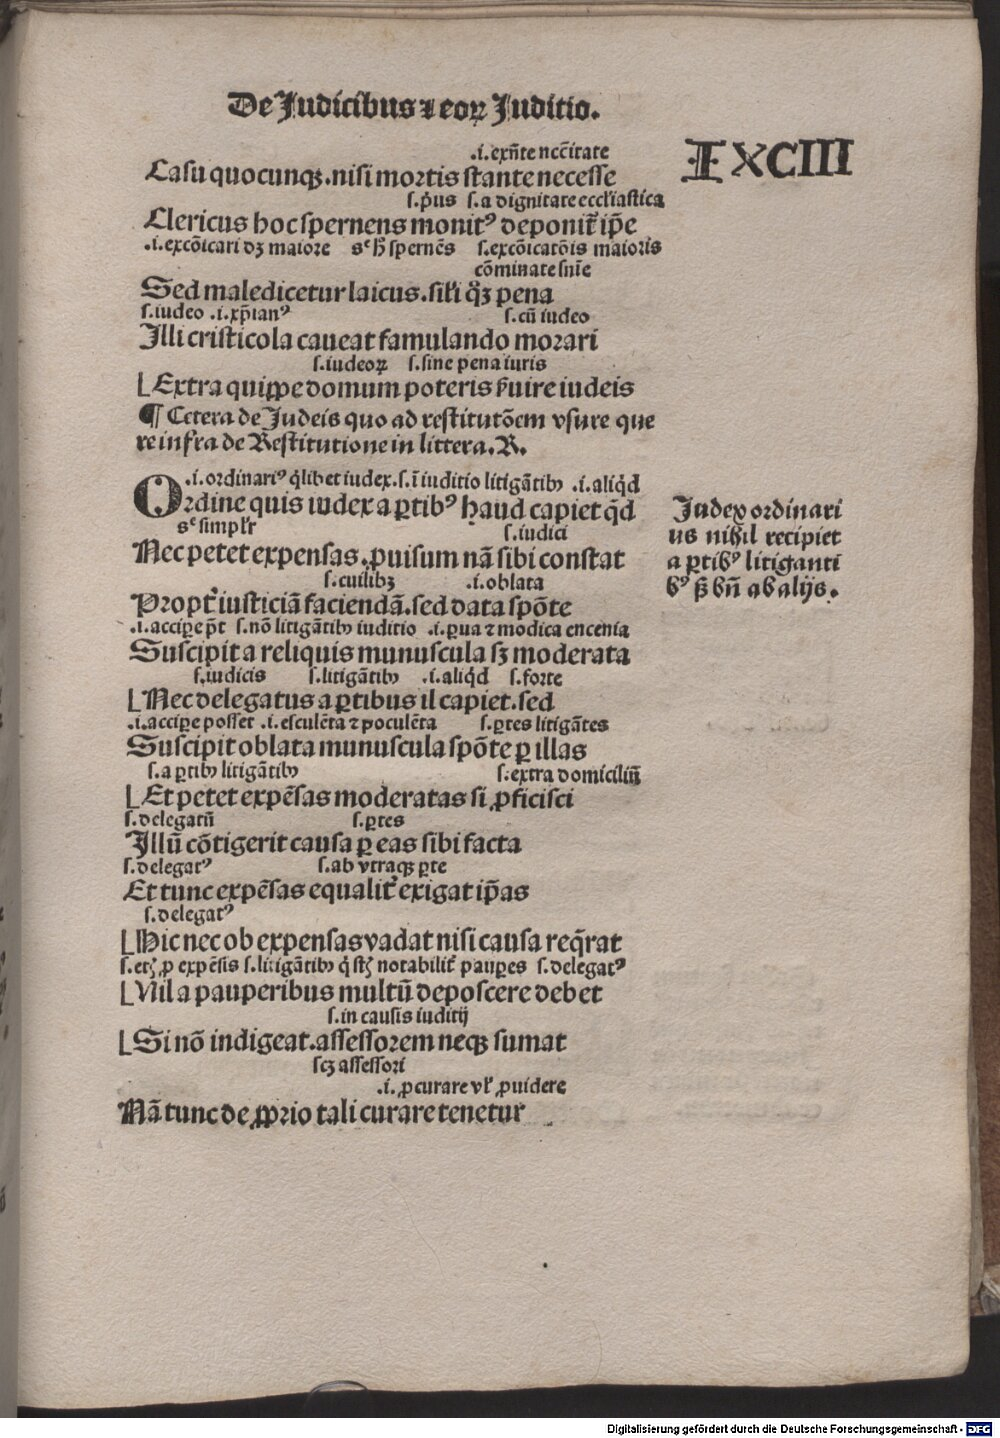 De Judicibus ⁊ eoꝝ Juditio.
LXCIII
.i. exn̄te ncc̄itate
Casu quocunqꝫ. nisi mortis stante necesse
s. pͥus s. a dignitate eccl'iastica
Clericus hoc spernens monitꝰ deponit̄ ip̄e
.i. excōicari dꝫ maiore sͨ h̄ spernēs s. excōicatōis maioris
cōminate snīe
Sed maledicetur laicus. sil'i q̄ꝫ pena
s. iudeo .i. xp̄ianꝰ s. cū iudeo
Illi cristicola caueat famulando morari
s. iudeoꝝ s. sine pena iuris
Extra quippe domum poteris ẜuire iudeis
¶ Cetera de Judeis quo ad restitutōem vsure que
re infra de Restitutione in littera. R.
.i. ordinariꝰ q̄libet iudex. s. ī iuditio litigātibꝰ .i. aliq̄d
Ordine quis iudex a ꝑtibꝰ haud capiet q̄d
sͨ simpl'r s. iudici
Nec petet expensas. ꝓuisum nā sibi constat
s. cuilibꝫ .i. oblata
Propt̄ iusticiā faciendā. sed data spōte
.i. accipe p̄t s. nō litigātibꝰ iuditio .i. ꝑua ⁊ modica encenia
Suscipit a reliquis munuscula sꝫ moderata
s. iudicis s. litigātibꝰ .i. aliq̄d s. forte
Nec delegatus a ꝑtibus il capiet. sed
.i. accipe posset .i. esculēta ⁊ poculēta s. ꝑtes litigātes
Suscipit oblata munuscula spōte ꝑ illas
s. a ꝑtibꝰ litigātibꝰ s. extra domiciliū
Et petet expēsas moderatas si ꝓficisci
s. delegatū s. ꝑtes
Illū cōtigerit causa ꝑ eas sibi facta
s. delegatꝰ s. ab vtraqꝫ ꝑte
Et tunc expēsas equalit̄ exigat ip̄as
s. delegatꝰ
Hic nec ob expensas vadat nisi causa req̄rat
s. etꝫ ꝓ expēsis s. litigātibꝰ q̄ stꝫ notabilit̄ pauꝑes s. delegatꝰ
Nil a pauperibus multū deposcere debet
s. in causis iuditij
Si nō indigeat. assessorem neqꝫ sumat
scꝫ assessori
.i. ꝓcurare vl' ꝓuidere
Nā tunc de ꝓprio tali curare tenetur
Judex ordinari
us nihil recipiet
a ꝑtibꝰ litiganti
bꝰ ß bn̄ ab alijs.
Digitalisierung gefördert durch die Deutsche Forschungsgemeinschaft - DFG